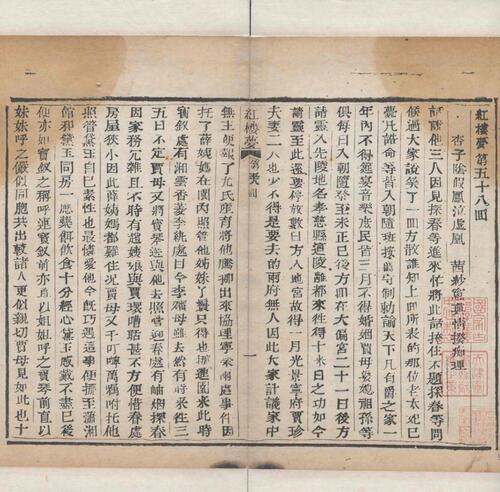 紅樓夢第五十八囬
杏子陰假鳳泣虛凰 茜紗窗眞情揆痴理
話說他三人因見探春等進來忙將此話掩住不題探春等問
候過大家說笑了一囬方散誰知上囬所表的那位老太妃已
薨凡誥命等皆入朝隨班按爵守制勅諭天下凡有爵之家一
年內不得筵宴音樂庶民皆三月不得婚姻賈母婆媳祖孫等
俱每日入朝隨祭至未正已後方囬在大偏宮二十一日後方
請靈入先陵地名孝慈縣這陵離都來往得十來日之功如今
請靈至此還要停放數日方入地宮故得一月光景寧府賈珍
夫妻二人也少不得是要去的兩府無人因此大家計議家中
紅樓夢 囬 一
無主便報了尤氏產育將他騰挪出來協理寧榮兩處事件因
托了薛姨媽在園內照管他姊妹丫鬟只得也挪進園來此時
寶釵處有湘雲香菱李紈處目今李嬸母雖去然有時來往三
五日不定賈母又將寶琴送與他去照管迎春處有岫烟探春
因家務冗雜且不時有趙姨娘與賈環嘈聒甚不方便惜春處
房屋狹小因此薛姨媽都難住况賈母又千叮嚀萬囑咐托他
照管黛玉自己素性也最憐愛他今旣巧遇這事便挪至瀟湘
館和黛玉同房一應藥餌飲食十分經心黛玉感戴不盡已後
便亦如寶釵之稱呼連寶釵前亦直以姐姐呼之寶琴前直以
妹妹呼之儼似同胞共出較諸人更似親切賈母見如此也十